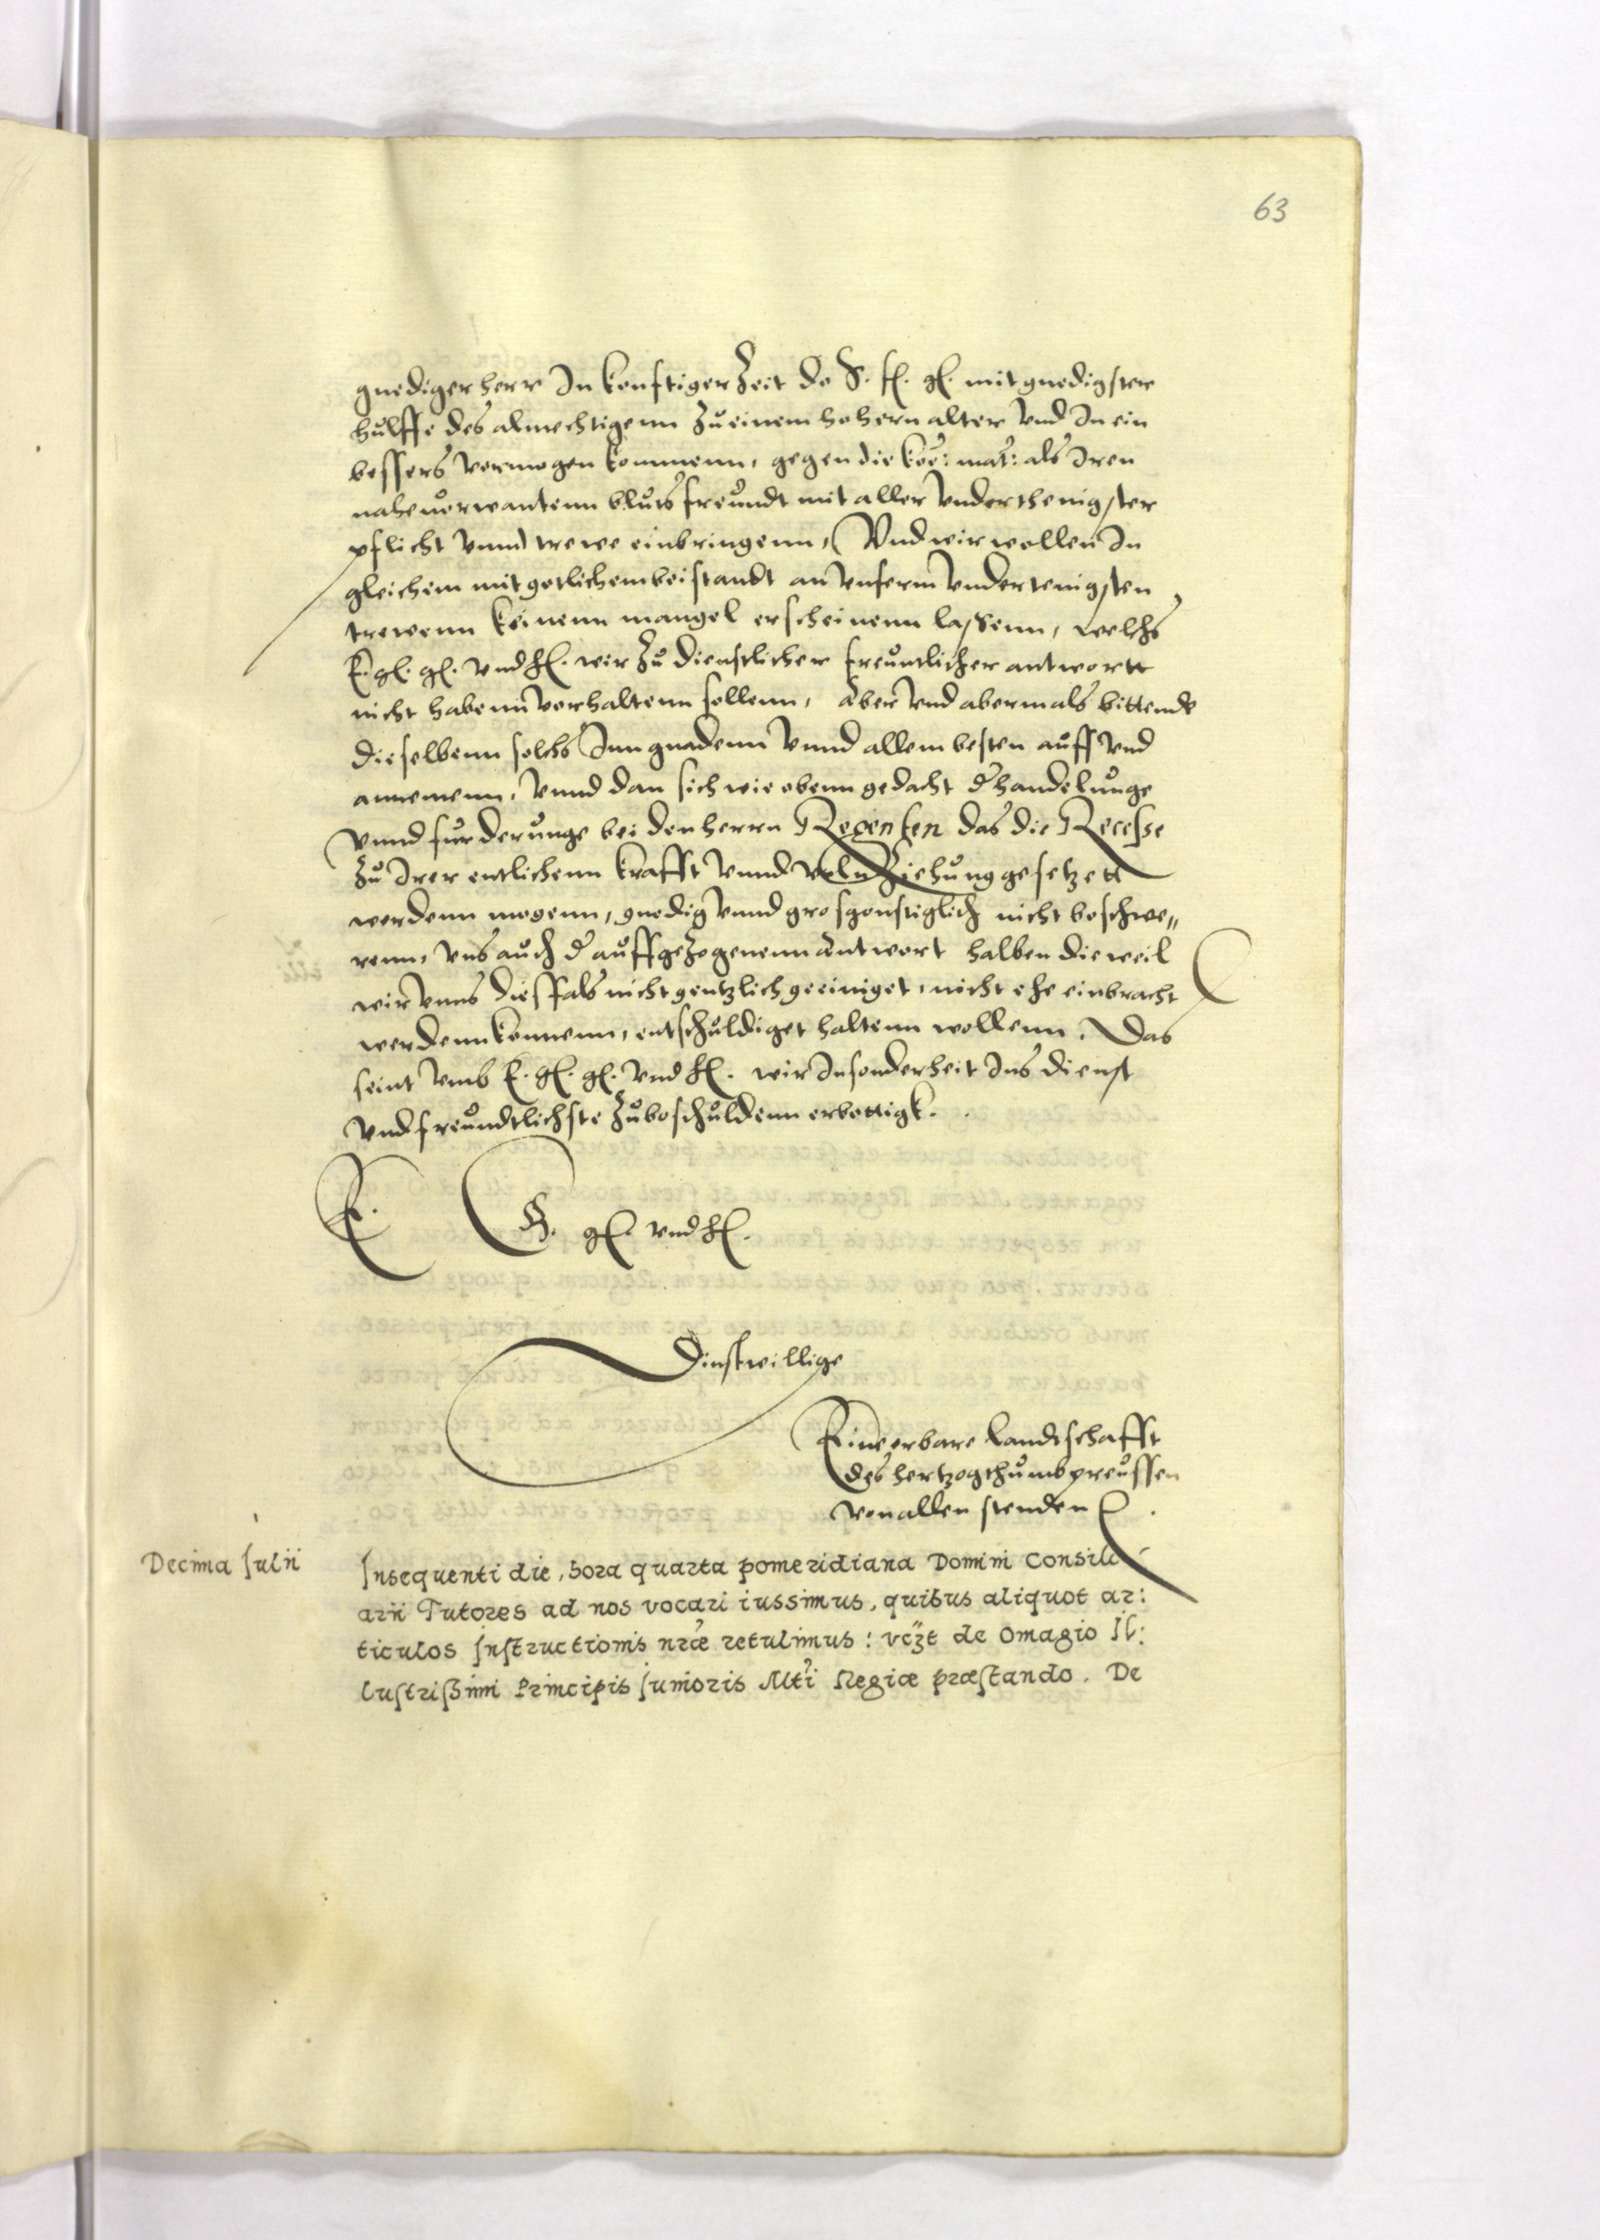 63
gnediger herr In konftiger Zeit do S. f. g. mit gnedigster
hulffe des almechtigenn Zu einem hohern alter vnd In ein
bessers vormogen kommenn, gegen die koe: mat: als Iren
nahe uorwantenn bluts freundt mit aller vnderthenigster
pflicht vnnd trewe einbringenn, Vnd wir wollen In
gleichem mit gotlichem beistandt an vnserm vndertenigsten
trewenn keinenn mangel erscheinenn lassenn, welchs
E. g. g. vnd f. wir Zu dienstlicher freuntlicher antwortt
nicht habenn vorhaltenn sollenn, Aber vnd abermals bittende
dieselbenn solchs Inn gnadenn vnnd allem besten auff vnd
annemenn, vnnd dan sich wie obenn gedacht d' handelunge
vnnd furderunge bei den herrn Regenten das die Recesse
Zu Irer entlichenn krafft vnnd volnZiehung gesetzett
werdenn mogenn, gnedig vnnd grosgonstiglich nicht beschwe„
renn, vns auch d' auffgeZogenenn Antwort halben die weil
wir vnns diessfals nicht gentzlich geeiniget, nicht ehe einbracht
werdenn konnenn, entschuldiget haltenn wollenn. Das
seint vmb E. g. g. vnd f. wir Insonderheit Ins dienst
vnd freundtlichste Zuboschuldenn erbottigk.
E. G. g. vnd f.
Dinstwillige
Eine erbare landtschafft
des hertzogthumbs preussen
von allen stenden
Decima Julii
Insequenti die, hora quarta pomeridiana Domini Consili
arii Tutores ad nos vocari iussimus, quibus aliquot ar:
ticulos Instructionis nræ retulimus: vczt de Omagio Il:
lustrißimi Principis Junioris Mti Regiæ præstando. De